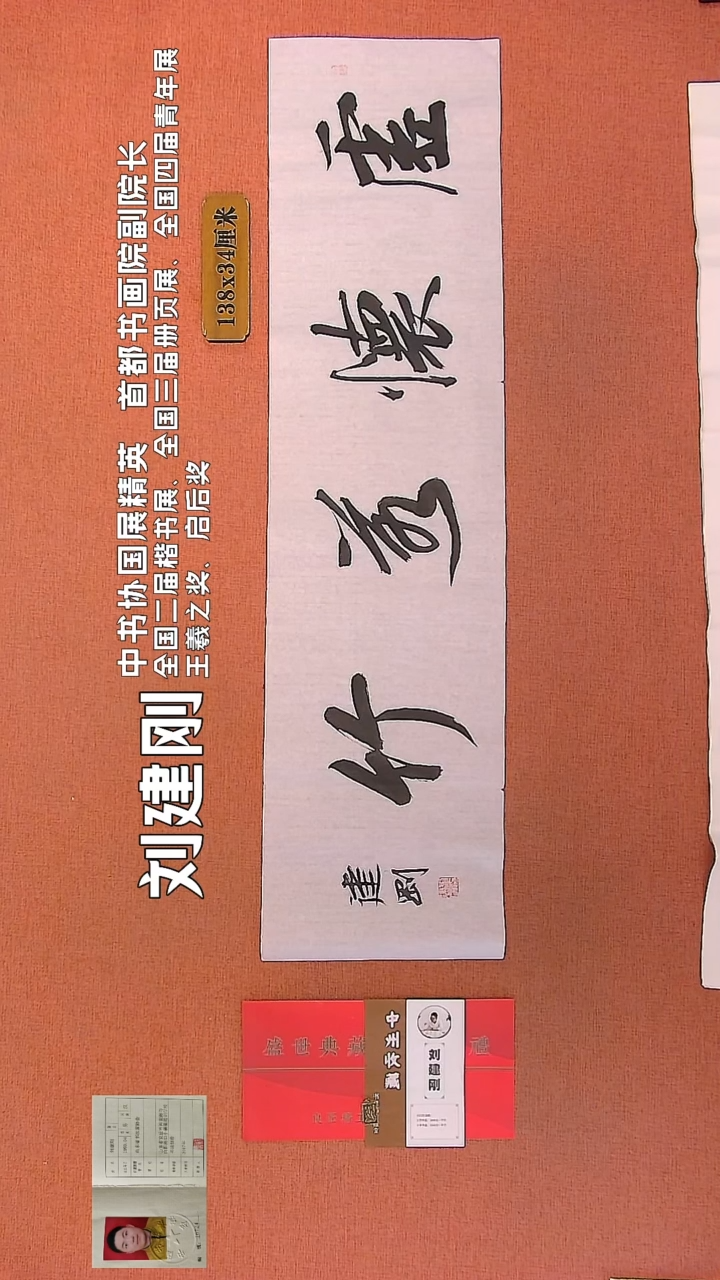 刘建刚
中书协国展精英 首都书画院副院长
全国二届楷书展、全国三届册页展、全国四届青年展
王羲之奖、启后奖
138x34厘米
虛懷若竹
建剛
刘建刚